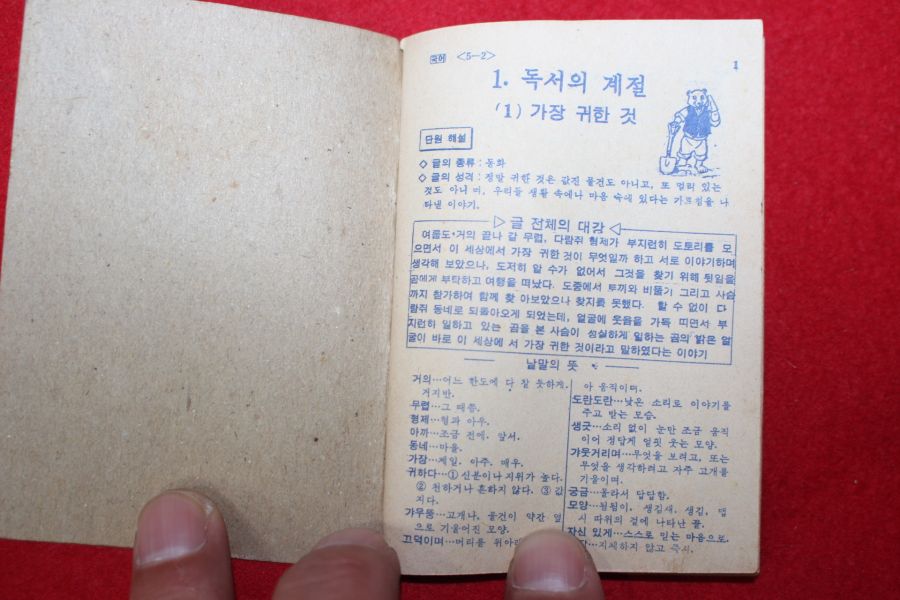 국어 <5-2>
1
1. 독서의 계절
(1) 가장 귀한 것
단원 해설
◇ 글의 종류 : 동화
◇ 글의 성격 : 정말 귀한 것은 값진 물건도 아니고, 또 멀리 있는
것도 아니 며, 우리들 생활 속에나 마음 속에 있다는 가르침을 나
타낸 이야기.
▷ 글 전체의 대강 ◁
여름도·거의 끝나 갈 무렵, 다람쥐 형제가 부지런히 도토리를 모
으면서 이 세상에서 가장 귀한 것이 무엇일까 하고 서로 이야기하며
생각해 보았으나, 도저히 알 수가 없어서 그것을 찾기 위해 뒷일을
곰에게 부탁하고 여행을 떠났다. 도중에서 토끼와 비둘기 그리고 사슴
까지 참가하여 함께 찾 아보았으나 찾지를 못했다. 할 수 없이 다
람쥐 동네로 되돌아오게 되었는데, 얼굴에 웃음을 가득 띠면서 부
지런히 일하고 있는 곰을 본 사슴이 성실하게 일하는 곰의 밝은 얼
굴이 바로 이 세상에 서 가장 귀한 것이라고 말하였다는 이야기
낱말의 뜻
거의…어느 한도에 다 잘 못하게.
거지반.
무렵…그 때쯤.
형제…형과 아우.
아까…조금 전에, 앞서.
동네…마을.
가장…제일, 아주, 매우.
귀하다…① 신분이나 지위가 높다.
② 천하거나 흔하지 않다. ③ 값
지다.
갸우뚱…고개나, 물건이 약간 옆
으로 기울어진 모양.
끄덕이며…머리를 위아래
아 움직이며.
도란도란…낮은 소리로 이야기를
주고 받는 모습.
생긋…소리 없이 눈만 조금 움직
이어 정답게 얼핏 웃는 모양.
갸웃거리며…무엇을 보려고, 또는
무엇을 생각하려고 자주 고개를
기울이며.
궁금…몰라서 답답함.
모양…됨됨이, 생김새, 생김, 맵
시 따위의 겉에 나타난 꼴.
자신 있게…스스로 믿는 마음으로.
지체하지 않고 즉시.